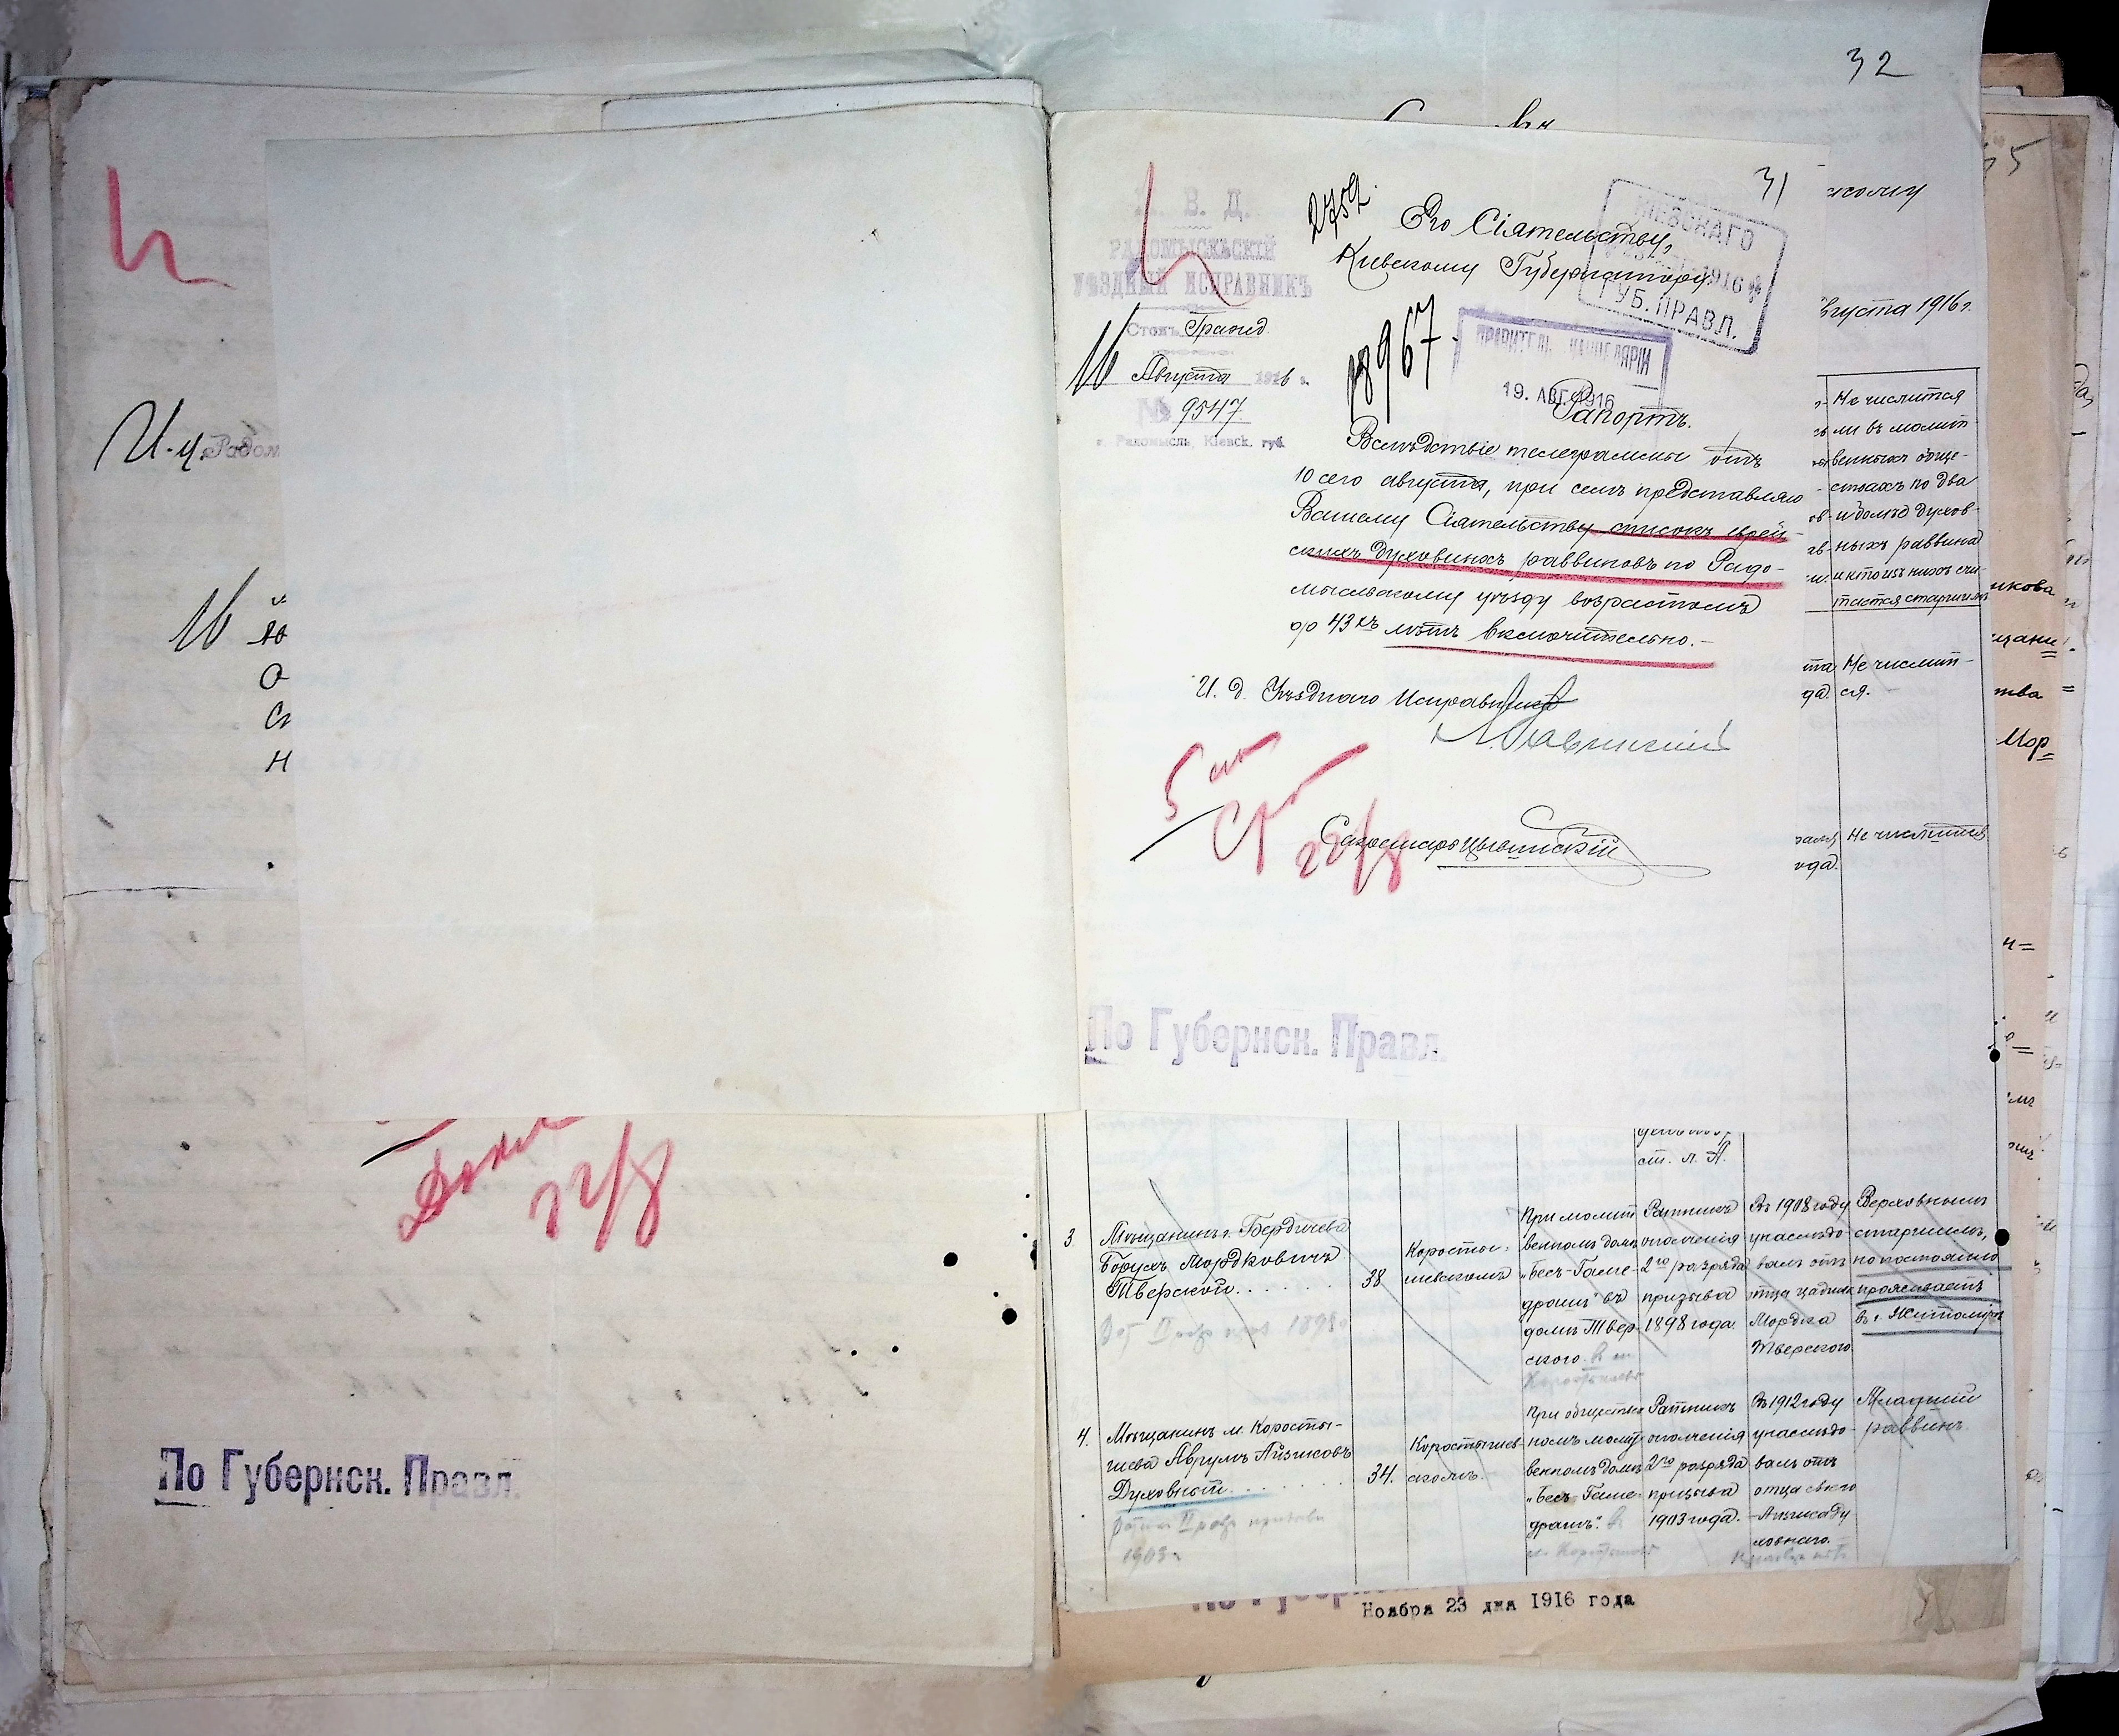 32
31
2759.
М. В. Д.
РАДОМЫСЛЬСКІЙ
УѢЗДНЫЙ ИСПРАВНИКЪ
Столъ Гражд.
16 Августа 1916 г.
№ 9547
г. Радомысль, Кіевск. губ.
Его Сіятельству,
Кіевскому Губернатору
КІЕВСКАГО
1916
ГУБ. ПРАВЛ.
18967.
ПРАВИТЕЛЬ КАНЦЕЛЯРІИ
19. АВГ. 1916
Рапортъ.
Вслѣдствіе телеграммы отъ
10 сего августа, при семъ представляю
Вашему Сіятельству списокъ еврей-
скихъ духовныхъ раввиновъ по Радо-
мысльскому уѣзду возрастомъ
до 43хъ лѣтъ включительно.-
И. д. Уѣзднаго Исправника
22/8
По Губернск. Правл.
И. д.
Радом
16
22/8
По Губернск. Правл.
вгуста 1916 г.
Не числится
ли въ молит-
венныхъ обще-
ствахъ по два
и болѣе духов-
ныхъ раввина
и кто изъ нихъ счи-
тается старшимъ
Не числит-
ся.
Не числится
года.
ст. л. А.
3.
Мѣщанинъ г. Бердичева
Борухъ Мордковичъ
Тверской.......
38
Коросты-
шевскомъ
При молит
венномъ домѣ
„Бесъ-Гаме-
драшъ" въ
домѣ Твер-
ского.
Ратникъ
ополченія
2го разряда
призыва
1898 года.
Въ 1908 году
унаслѣдо-
валъ отъ
отца цадика
Мордка
Тверского
Верховнымъ
старшимъ,
но постоянно
проживаетъ
въ г. Житомірѣ
4.
Мѣщанинъ м. Коросты-
шева Аврумъ Айзиковъ
Духовный........
34.
Коростышев-
скомъ.
При обществен
номъ молит
венномъ домѣ
„Бесъ-Гаме-
драшъ".
Ратникъ
ополченія
2го разряда
призыва
1903 года.
Въ 1912 году
унаслѣдо-
валъ отъ
отца своего
-Айзика Ду
ховнаго.
Младшій
раввинъ.
Ноября 23 дня 1916 года